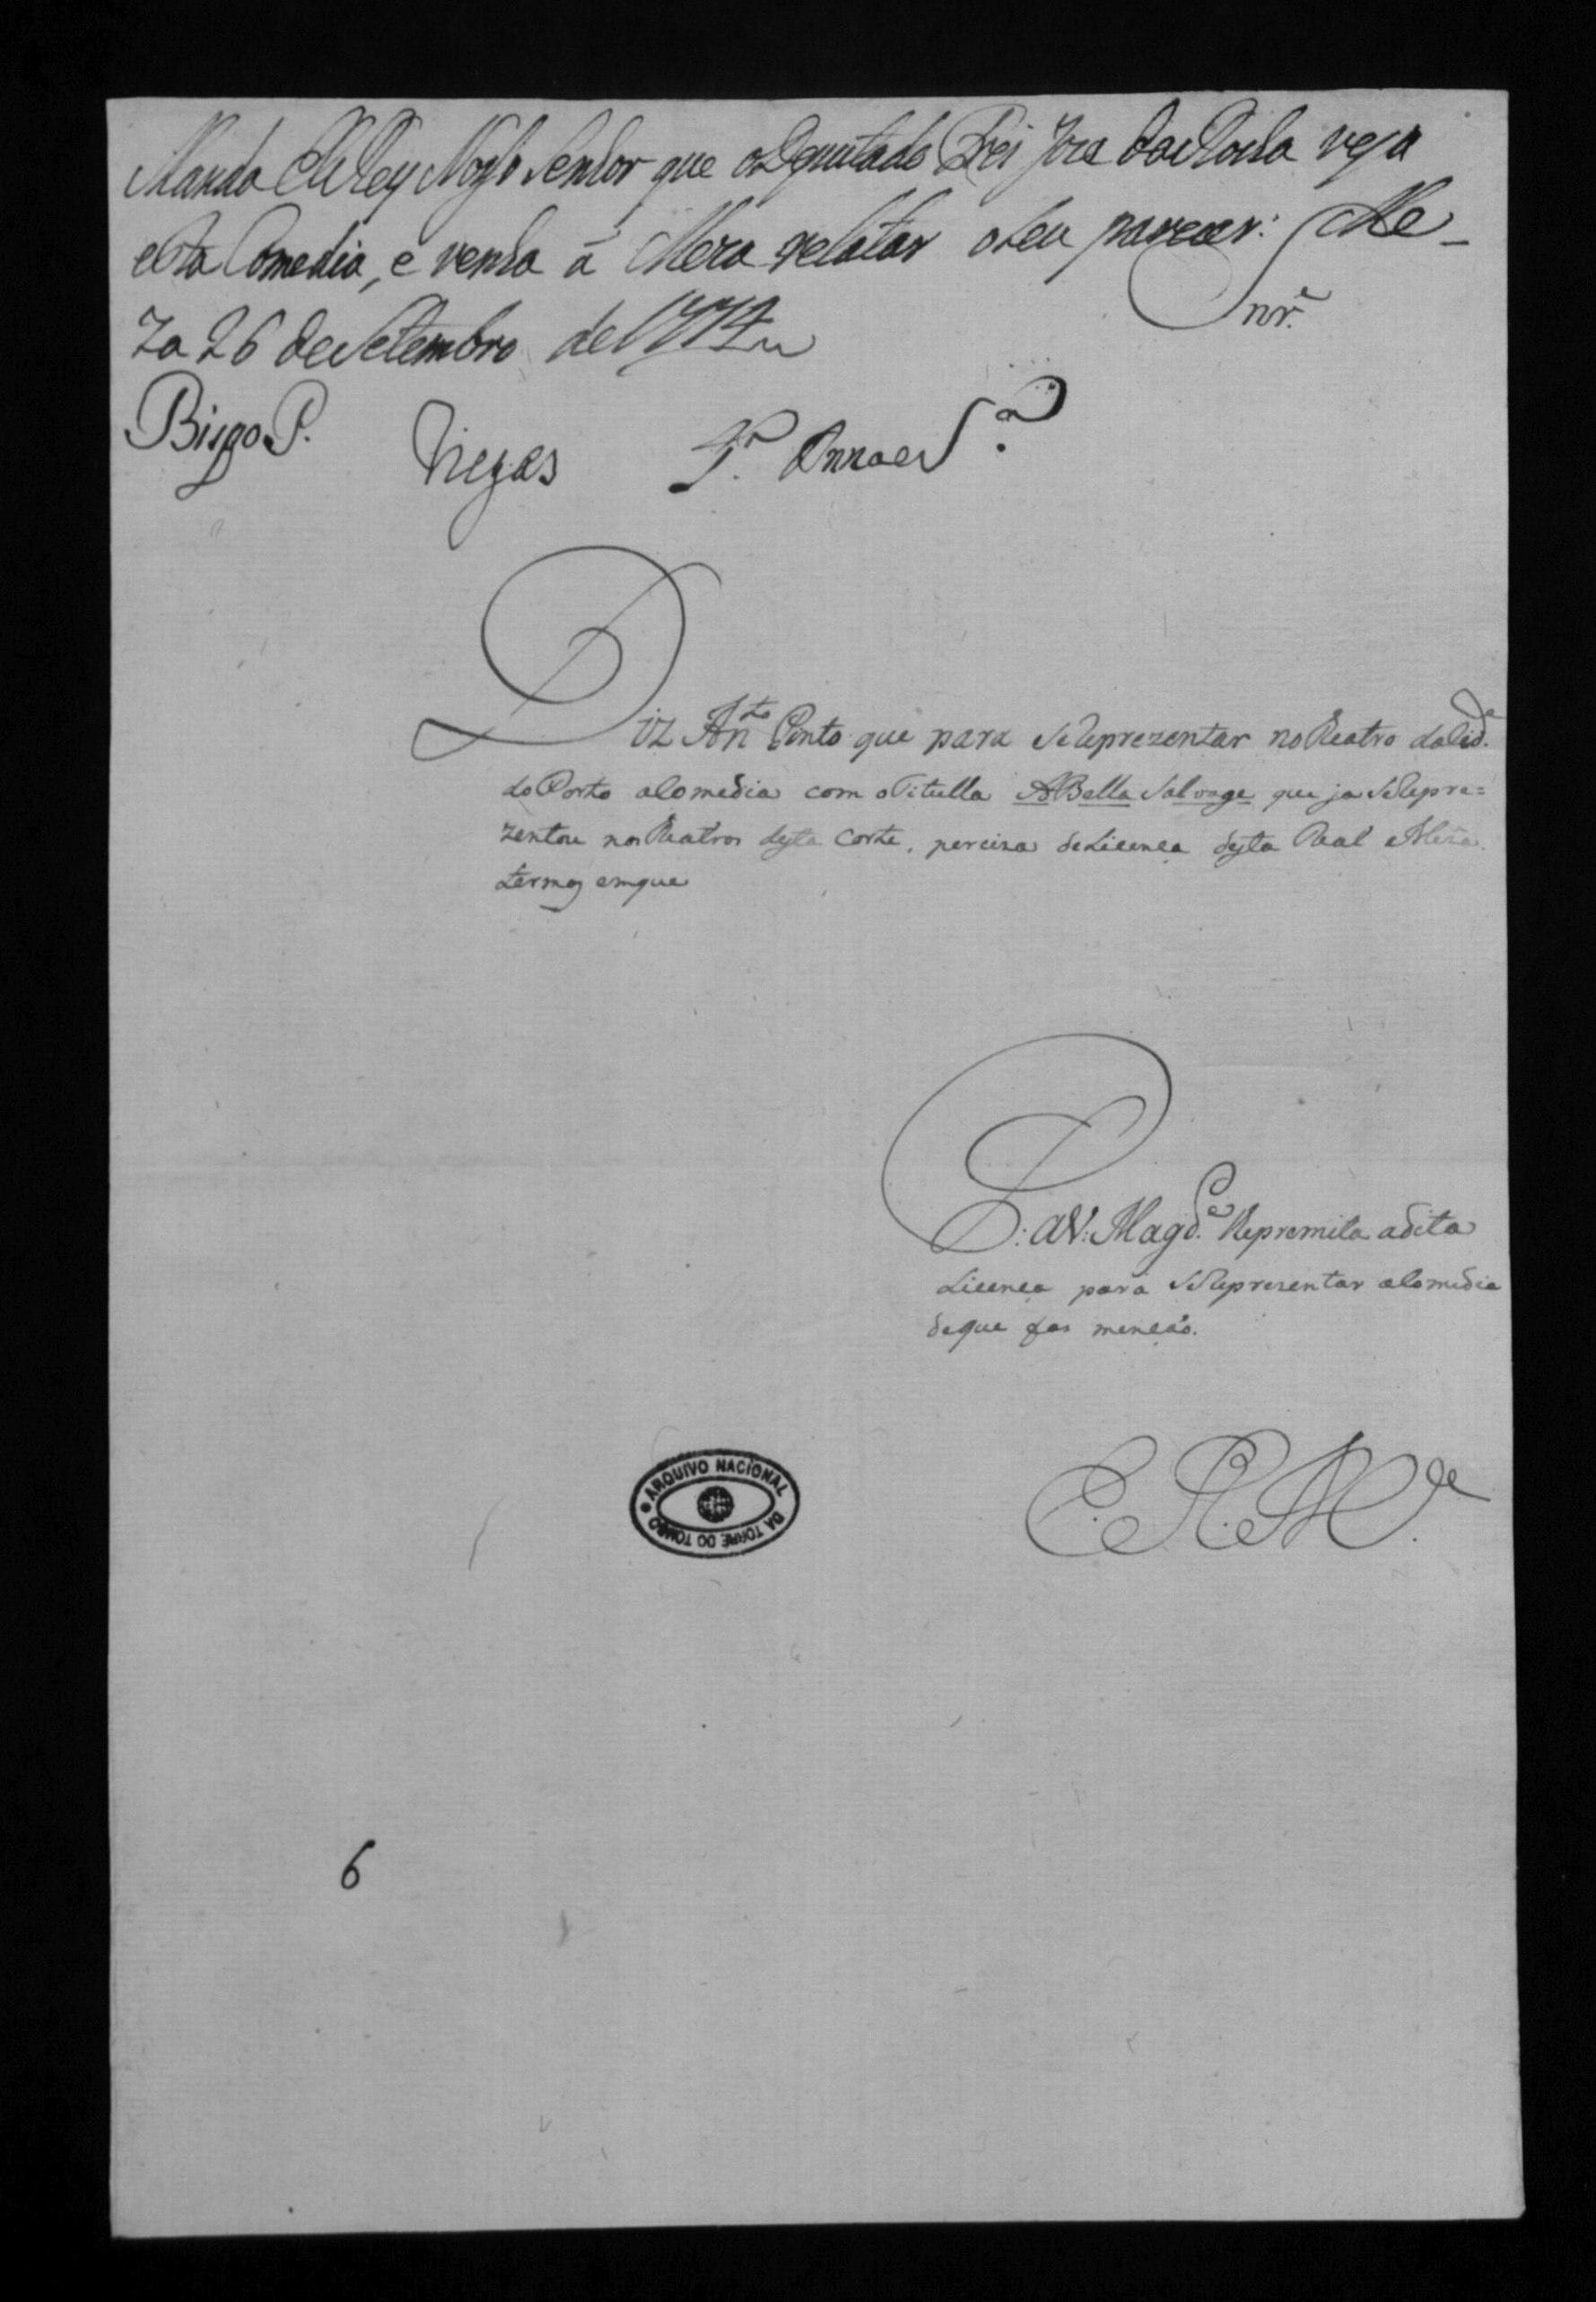 Manda El Rey Nosso Senhor que o Deputado Frei Joze da Rocha veja
esta Comedia, e venha á Meza relatar o seu parecer: Me-
za 26 de Setembro de 1774
Snr.ᵉ
Bispo P. Viegas
Diz Ant.º Pinto que para se Reprezentar no Reatro da Cid.ᵉ
do Porto a Comedia com o Titulla A Bella Salvage que ja se Repre=
zentou nos Reatros desta Corte, perciza de Licença desta Real Meza.
termos em que
P. a V. Magd.ᵉ Repremita a dita
Licença para se Reprezentar a Comedia
de que fas menção.
E. R. M.ᶜᵉ
ARQUIVO NACIONAL
DA TORRE DO TOMBO
6